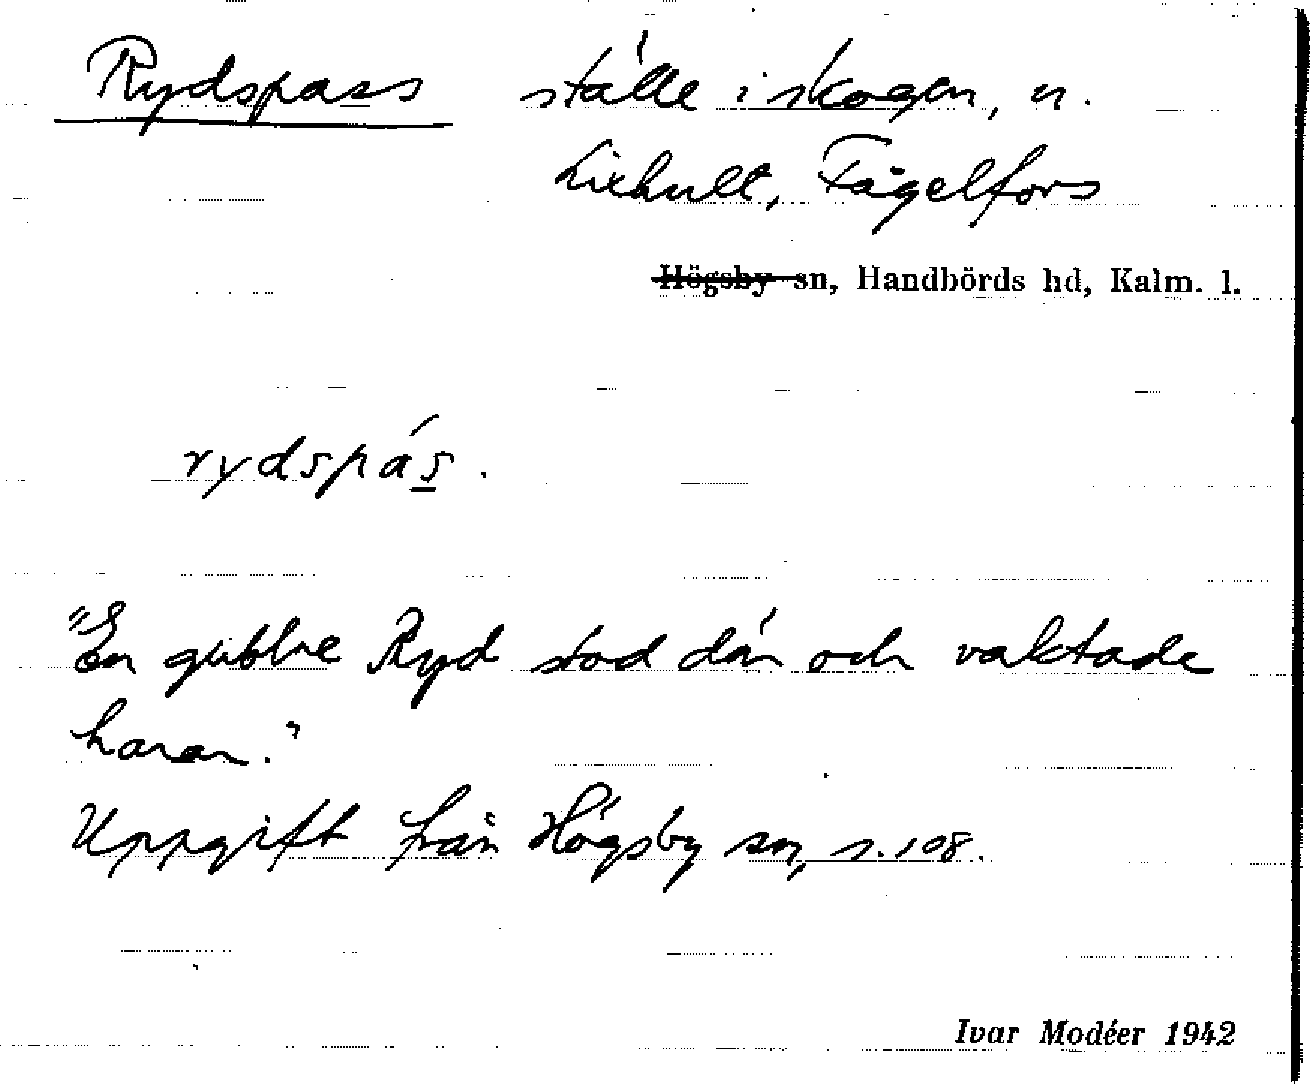 Rydspass ställe i skogen, n.
Liehult, Fagelfors
Högsby sn, Handbörds hd, Kalm. l.
rydspás.
"En gubbe Ryd stod där och vaktade
haran."
Uppgift från Högsby sn, s. 108.
Ivar Modéer 1942